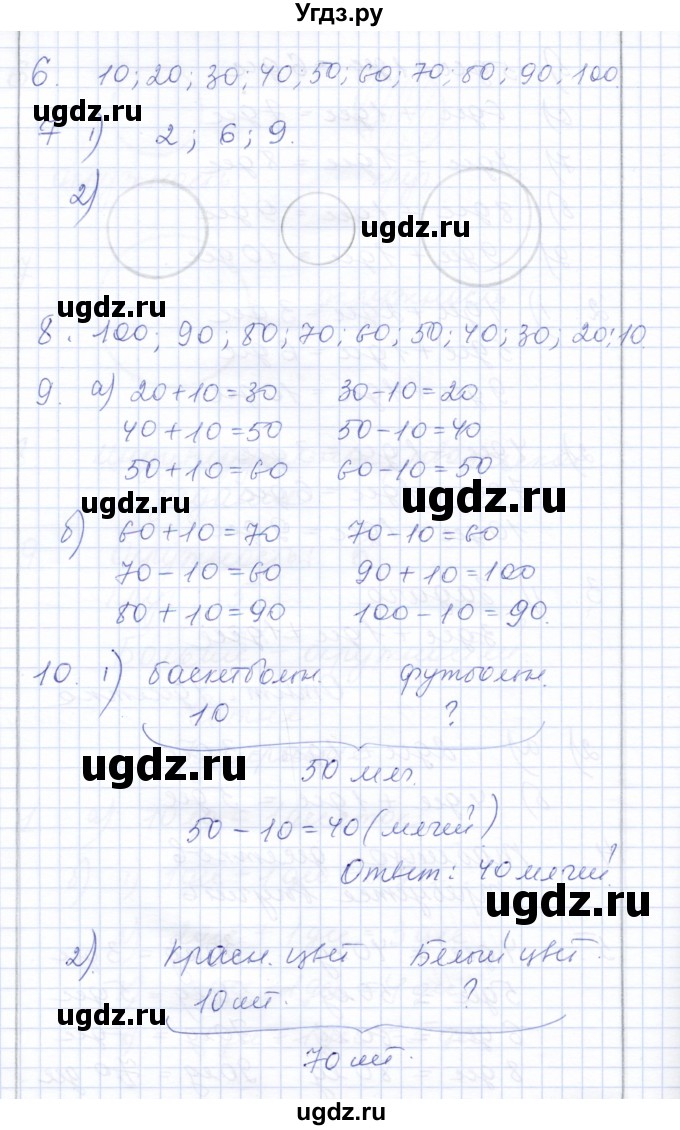 Угдз.ру
6. 10; 20; 30; 40; 50; 60; 70; 80; 90; 100.
ugdz.ru
7 1) 2; 6; 9.
2)
ugdz.ru
ugdz.ru
8. 100; 90; 80; 70; 60; 50; 40; 30; 20; 10.
9. а) 20+10=30 30-10=20
40+10=50 50-10=40
50+10=60 60-10=50
ugdz.ru
ugdz.ru
б) 60+10=70 70-10=60
70-10=60 90+10=100
80+10=90 100-10=90.
10. 1) баскетбольн. футбольн.
10 ?
ugdz.ru
50 мяч.
50-10=40 (мячей)
Ответ: 40 мячей.
ugdz.ru
2). Красн. цвет Белый цвет.
10 шт. ?
ugdz.ru
70 шт.
ugdz.ru